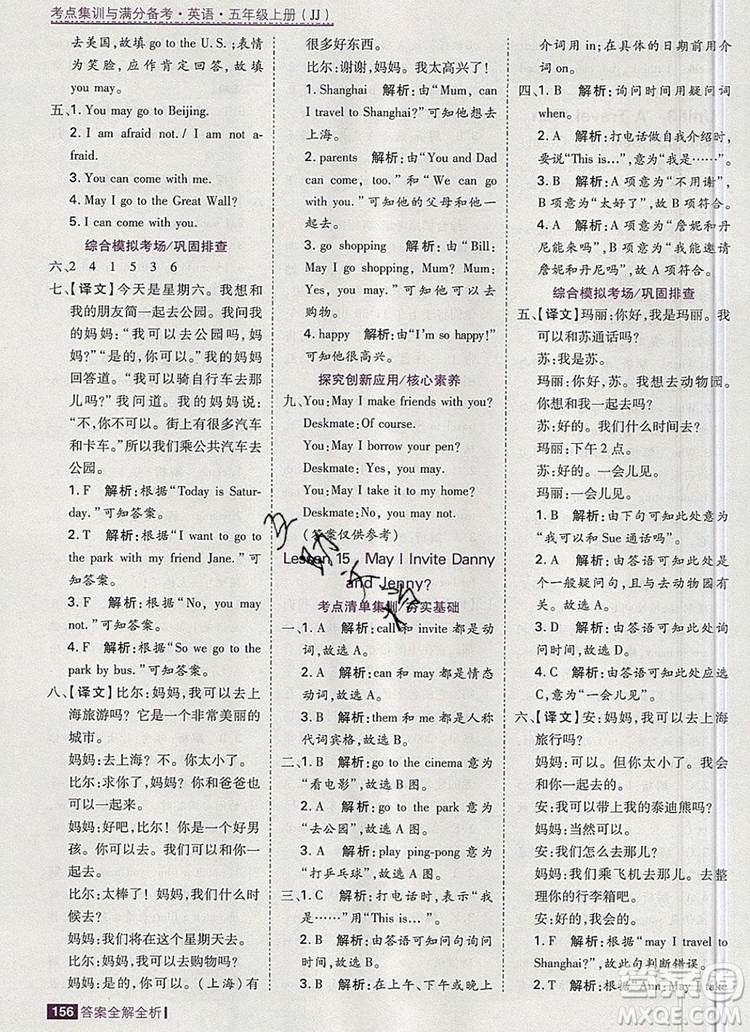 考点集训与满分备考·英语·五年级上册(JJ)
去美国,故填 go to the U. S. ;表情
为笑脸,应作肯定回答,故填
you may.
五、1. You may go to Beijing.
2. I am afraid not. / I am not a-
fraid.
3. You can come with me.
4. May I go to the Great Wall?
5. I can come with you.
综合模拟考场/巩固排查
六、2 4 1 5 3 6
七、【译文】今天是星期六。我想和
我的朋友简一起去公园。我问我
的妈妈:“我可以去公园吗,妈
妈?”“是的,你可以。”我的妈妈
回答道。“我可以骑自行车去那
儿吗?”我问道。我的妈妈说:
“不,你不可以。街上有很多汽车
和卡车。”所以我乘公共汽车去
公园。
1. F 解析:根据“Today is Satur-
day. ”可知答案。
2. T 解析:根据“I want to go to
the park with my friend Jane. ”可
知答案。
3. F 解析:根据“No, you may
not. ”可知答案。
4. F 解析:根据“So we go to the
park by bus. ”可知答案。
八、【译文】比尔:妈妈,我可以去上
海旅游吗?它是一个非常美丽的
城市。
妈妈:去上海?不。你太小了。
比尔:求你了,妈妈。你和爸爸可
以一起来。
妈妈:好吧,比尔。你是一个好男
孩。你可以和我们一起去。
比尔:太棒了!妈妈,我们什么时
候去?
妈妈:我们可以在这个星期天去。
比尔:妈妈,我可以去购物吗?
妈妈:可以,你可以。(上海)有
很多好东西。
比尔:谢谢,妈妈。我太高兴了!
1. Shanghai 解析:由“Mum, can
I travel to Shanghai?”可知他想去
上海。
2. parents 解析:由“You and Dad
can come, too. ”和“We can go
with you. ”可知他的父母和他一
起去。
3. go shopping 解析:由“Bill:
May I go shopping, Mum? Mum:
Yes, you may. ”可知他可以去
购物。
4. happy 解析:由“I'm so happy!”
可知他很高兴。
探究创新应用/核心素养
九、You:May I make friends with you?
Deskmate:Of course.
You:May I borrow your pen?
Deskmate:Yes, you may.
You:May I take it to my home?
Deskmate:No, you may not.
(答案仅供参考)
Lesson 15 May I Invite Danny
and Jenny?
考点清单集训/夯实基础
一、1. A 解析:call 和 invite 都是动
词,故选 A。
2. A 解析:can 和 may 都是情态
动词,故选 A。
3. B 解析:them 和 me 都是人称
代词宾格,故选 B。
二、1. B 解析:go to the cinema 意为
“看电影”,故选 B 图。
2. A 解析:go to the park 意为
“去公园”,故选 A 图。
3. A 解析:play ping-pong 意为
“打乒乓球”,故选 A 图。
三、1. C 解析:打电话时,表示“我
是……”,用“This is...”。
2. B 解析:由答语可知问句询问
时间,故选 B。
3. A 解析:在上午、下午或晚上用
介词用 in;在具体的日期前用介
词 on。
四、1. B 解析:询问时间用疑问词
when。
2. A 解析:打电话做自我介绍时,
要说“This is...”,意为“我是……”。
3. B 解析:A 项意为“不用谢”,B
项意为“太好了”,故 B 项符合。
4. A 解析:A 项意为“詹妮和丹
尼能来吗”,B 项意为“我可以邀请
詹妮和丹尼吗”,故 A 项符合。
综合模拟考场/巩固排查
五、【译文】玛丽:你好,我是玛丽。我
可以和苏通话吗?
苏:我是苏。
玛丽:你好,苏。我们去动物园。
你想和我一起去吗?
苏:好的。我们什么时间去?
玛丽:下午 2 点。
苏:好的。一会儿见。
玛丽:一会儿见。
1. B 解析:由下句可知此处意为
“我可以和 Sue 通话吗”。
2. C 解析:由答语可知此处是个
一般疑问句,且与去动物园有关。
3. A 解析:由答语可知此处询问
时间。
4. D 解析:由答语可知此处询问
时间,故选 D。
5. E 解析:由答语可知此处应选
“一会儿见”。
六、【译文】安:妈妈,我可以去上海
旅行吗?
妈妈:可以。但我们可以一起去。
安:我可以带上我的泰迪熊吗?
妈妈:当然可以。
安:我们怎么去那儿?
妈妈:我们坐火车去那儿。快去整
理你的行李箱吧。
安:好的。
1. F 解析:根据“may I travel to
Shanghai?”故此句判断错误。
2. F 解析:根据“Ann: May I take
156 答案全解全析